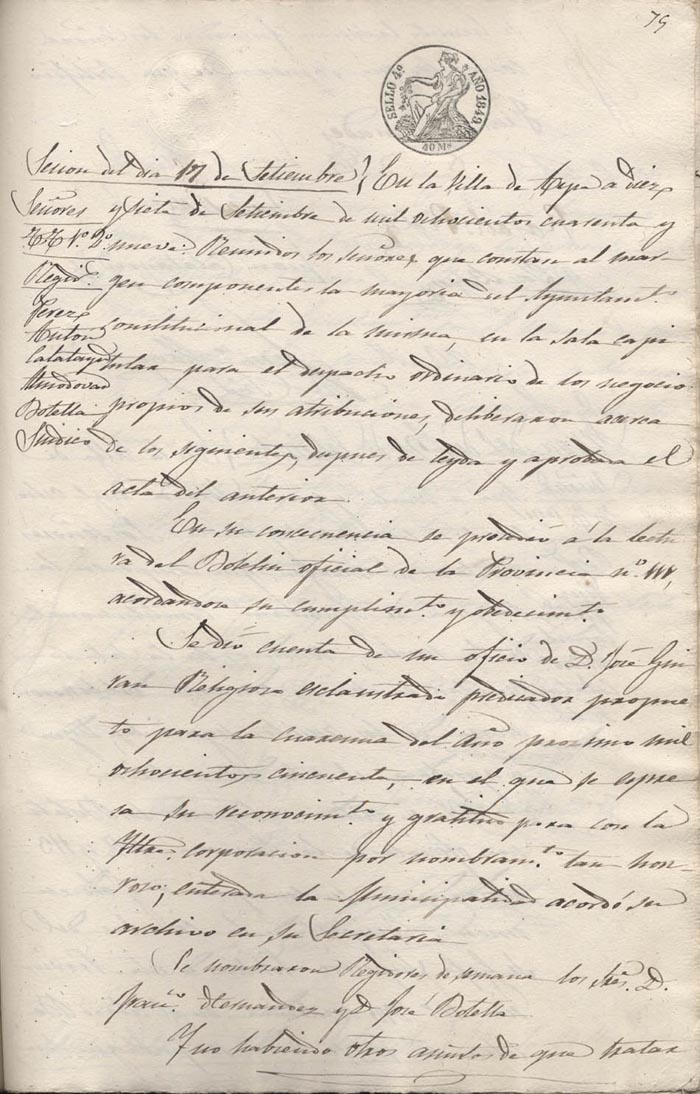 75
SELLO 4º AÑO 1849.
40 Ms
Sesion del dia 17 de Setiembre
Señores
Regids
Perez
Anton
Calatayud
Almodovar
Botella
Sindico
En la Villa de Aspe a diez
y siete de Setiembre de mil ochocientos cuarenta y
nueve. Reunidos los señores que constan al mar
gen componentes la mayoria del Ayuntamto
constitucional de la misma, en la sala capi
tular para el despacho ordinario de los negocio
propios de sus atribuciones, deliberaron acerca
de los siguientes, despues de leyda y aprobada el
acta del anterior.
En su consecuencia se procedió á la lectu
ra del Boletin oficial de la Provincia nº 111,
acordandose su cumplimto y obedecimto
Se dió cuenta de un oficio de D. José Gui
ran Religioso esclaustrado predicador propues
to para la cuaresma del Año proximo mil
ochocientos cincuenta, en el que se espre
sa su reconocimto y gratitud para con la
Iltre corporacion por nombramto tan hon-
roso; enterada la Municipalidad acordó su
archivo en su Secretaria
Se nombraron Regidores de semana los Sres D.
Franco Hernandez y D. José Botella
Y no habiendo otros asuntos de que tratar